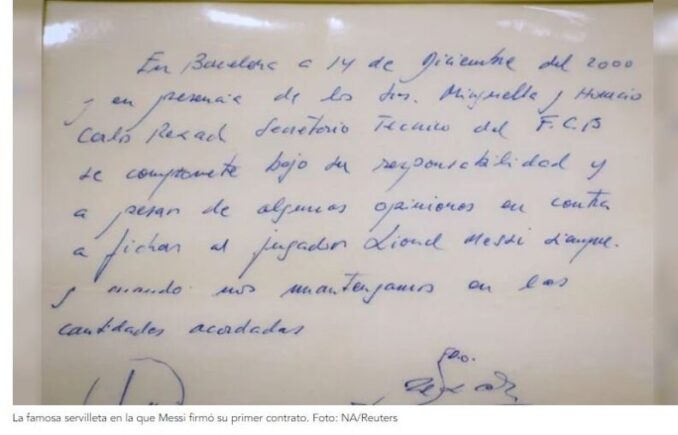 En Barcelona a 14 de Diciembre del 2000
y en presencia de los Srs. Minguella y Horacio
Carlo Rexach Secretario Tecnico del F.C.B
se compromete bajo su responsabilidad y
a pesar de algunas opiniones en contra
a fichar al jugador Lionel Messi siempre.
y cuando nos mantengamos en las
cantidades acordadas
Fdo.
La famosa servilleta en la que Messi firmó su primer contrato. Foto: NA/Reuters